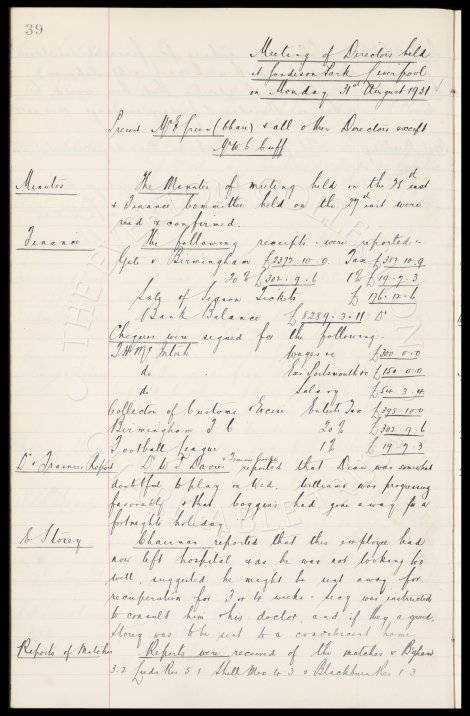 39
Meeting of Directors held
at Goodison Park Liverpool
on Monday 31st August 1931
Present Mr E Green (Chair) & all other Directors except
Mr W C Cuff
Minutes The Minutes of meeting held on the 25th inst
& Finance Committee held on the 27th inst were
read & confirmed.
Finance The following receipts were reported:-
Gate v Birmingham £2372.10.0 Tax £383.10.9
20% £302.9.6 1% £19.7.3
Sale of Season Tickets £176.12.6
Bank Balance £8289.3.11 Dr
Cheques were signed for the following:-
T. H. McIntosh Wages &c £300.0.0
do Exs Portsmouth &c £150.0.0
do Salary £54.3.4
Collector of Customs & Excise Enter'ts Tax £398.10.0
Birmingham F C 20% £302.9.6
Football League 1% £19.7.3
Dr & Trainers Report Dr W. F. Davies & Trainer reported that Dean was somewhat
doubtful to play on Wed, Williams was progressing
favorably & that Coggins had gone away for a
fortnights holiday
C Storey Chairman reported that this employee had
now left hospital & as he was not looking too
well, suggested he might be sent away for
recuperation for 3 or 4 weeks. Secy was instructed
to consult him & his doctor, and if they agreed,
Storey was to be sent to a convalescent home
Reports of Matches Reports were received of the matches v B'ham
3.2 Leeds Res 5.1 Shell Mex 4.3 & Blackburn Res 1.3